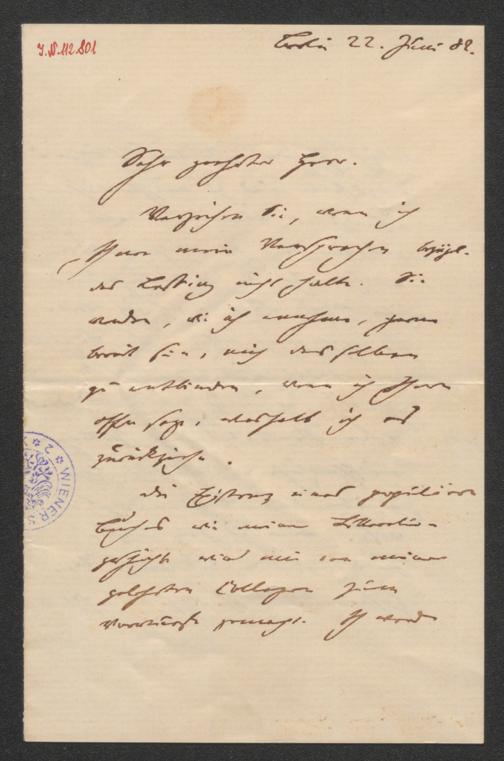 J.N. 112.801
Berlin 22. Juni 82.
Sehr geehrter Herr.
Verzeihen Sie, wenn ich
Ihnen mein Versprechen bezügl.
des Lessing nicht halte. Sie
werden, wie ich annehme, gerne
bereit sein, mich desselben
zu entbinden, wenn ich Ihnen
offen sage, weshalb ich es
zurückziehe.
Die Existenz eines populären
Buches wie meine Litteratur-
geschichte wird mir von meinen
gelehrten Collegen zum
Vorwurfe gemacht. Ich werde
WIENER